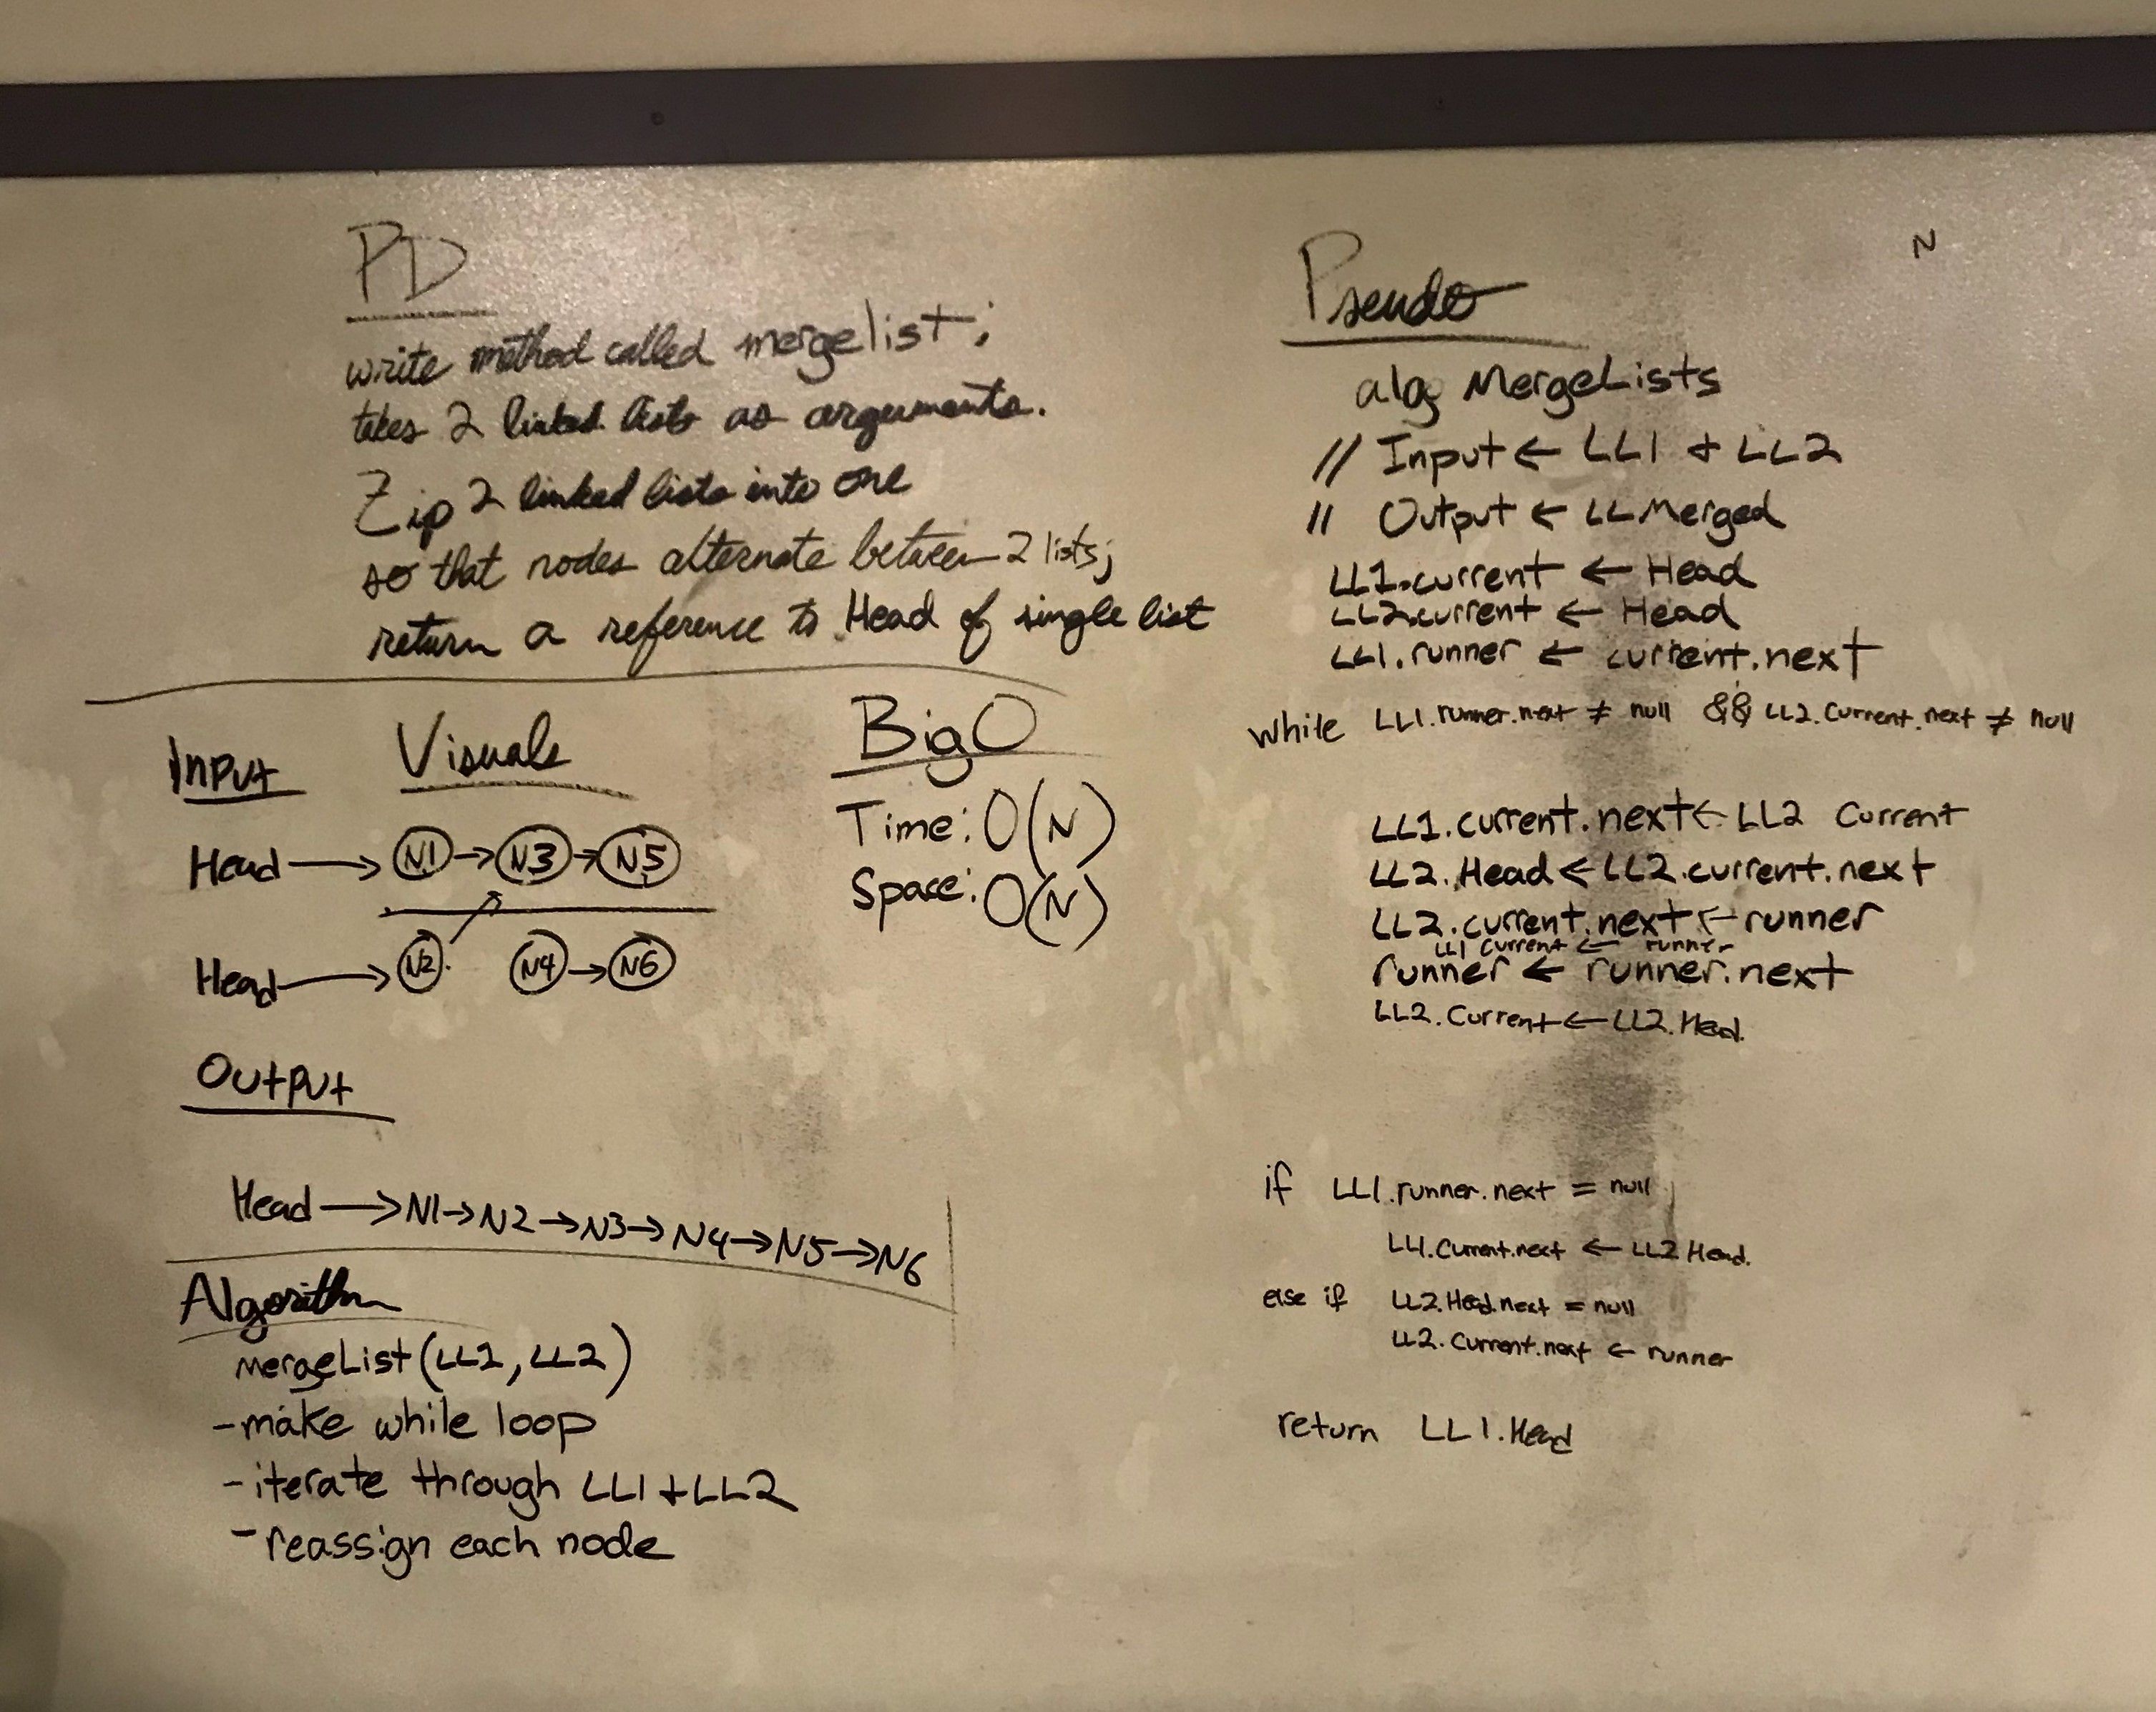 PD
write method called mergelist;
takes 2 linked lists as arguments.
Zip 2 linked lists into one
so that nodes alternate between 2 lists;
return a reference to Head of single list
Input
Visuals
Head → N1 → N3 → N5
Head → N2 N4 → N6
Output
Head → N1 → N2 → N3 → N4 → N5 → N6
Big O
Time: O(N)
Space: O(N)
Algorithm
mergeList(LL1, LL2)
- make while loop
- iterate through LL1 + LL2
- reassign each node
N
Pseudo
alg MergeLists
// Input ← LL1 + LL2
// Output ← LLMerged
LL1.current ← Head
LL2.current ← Head
LL1.runner ← current.next
while LL1.runner.next ≠ null && LL2.current.next ≠ null
LL1.current.next ← LL2 Current
LL2.Head ← LL2.current.next
LL2.current.next ← runner
LL1 current ← runner
runner ← runner.next
LL2.Current ← LL2.Head.
if LL1.runner.next = null
LL1.Current.next ← LL2 Head.
else if LL2.Head.next = null
LL2.Current.next ← runner
return LL1.Head